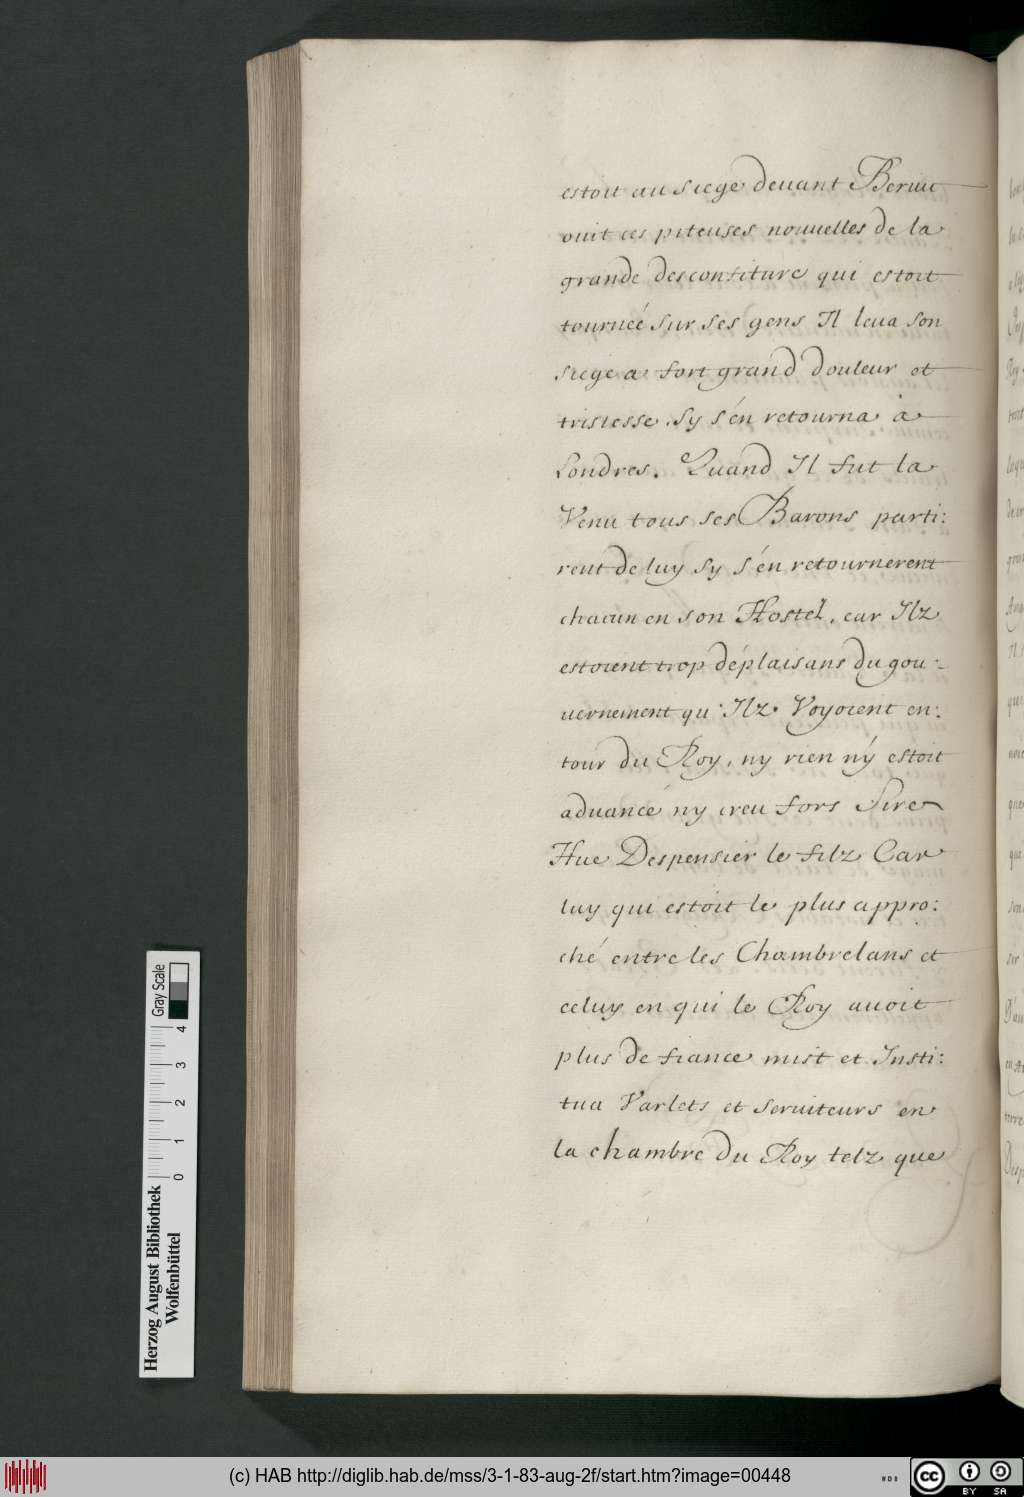 estoit au siege deuant Beruic
ouit ces piteuses nouuelles de la
grande desconfiture qui estoit
tourneé sur ses gens Il leua son
siege a fort grand douleur et
tristesse. sy s'én retourna à
Londres. Quand Il fut la
Venu tous ses Barons parti:
rent de luy sy s'én retournerent
chacun en son Hostel, car Ilz
estoient trop déplaisans du gou:
uernement qu'Ilz Voyoient en:
tour du Roy, ny rien n'ý estoit
aduancé ny creu fors Sire
Hue Despensier le filz Car
luy qui estoit le plus appro:
ché entre les Chambrelans et
celuy en qui le Roy auoit
plus de fiance mist et Insti:
tua Varlets et seruiteurs en
la chambre du Roy telz que
Gray Scale
0 1 2 3 4
Herzog August Bibliothek
Wolfenbüttel
(c) HAB http://diglib.hab.de/mss/3-1-83-aug-2f/start.htm?image=00448
WDB
cc
BY SA